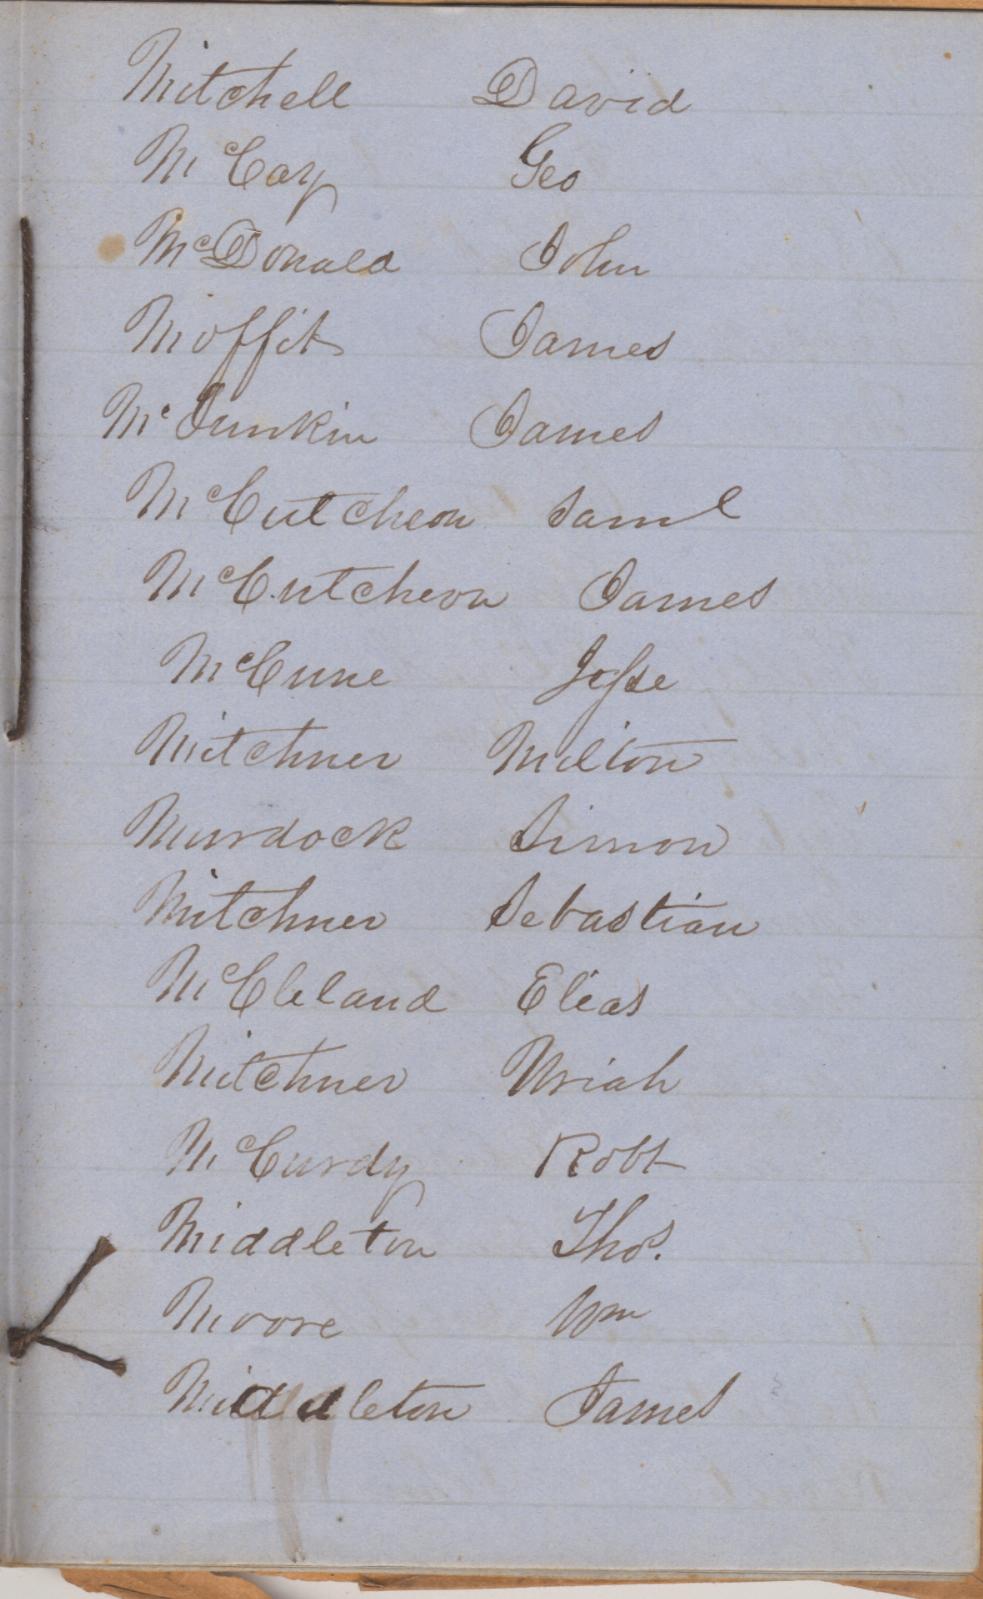 Mitchell David
McCay Geo
McDonald John
Moffit James
McJunkin James
McCutcheon Saml
McCutcheon James
McCune Jesse
Mitchner Milton
Murdock Simon
Mitchner Sebastian
McCleland Elias
Mitchner Uriah
McCurdy Robt
Middleton Thos.
Moore Wm
Middleton James